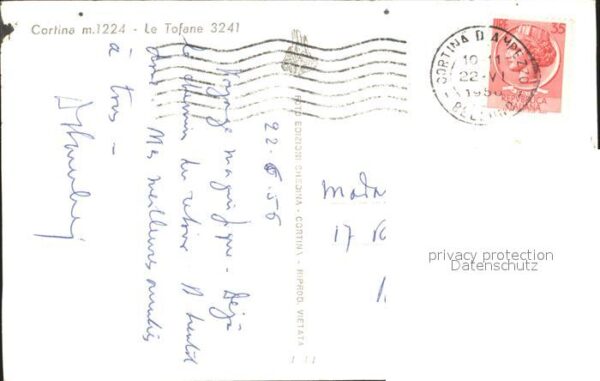 Cortina m.1224 - Le Tofane 3241
22-6-56
Voyage magnifique - Déjà
le chemin du retour. A bientôt
Mes meilleures amitiés
à tous -
FOTO EDIZIONI GHEDINA - CORTINA - RIPROD. VIETATA
35
CORTINA D'AMPEZZO
10-11
22-VI
1956
BELLUNO
REPUBBLICA
ITALIANA
Mada
17
privacy protection
Datenschutz